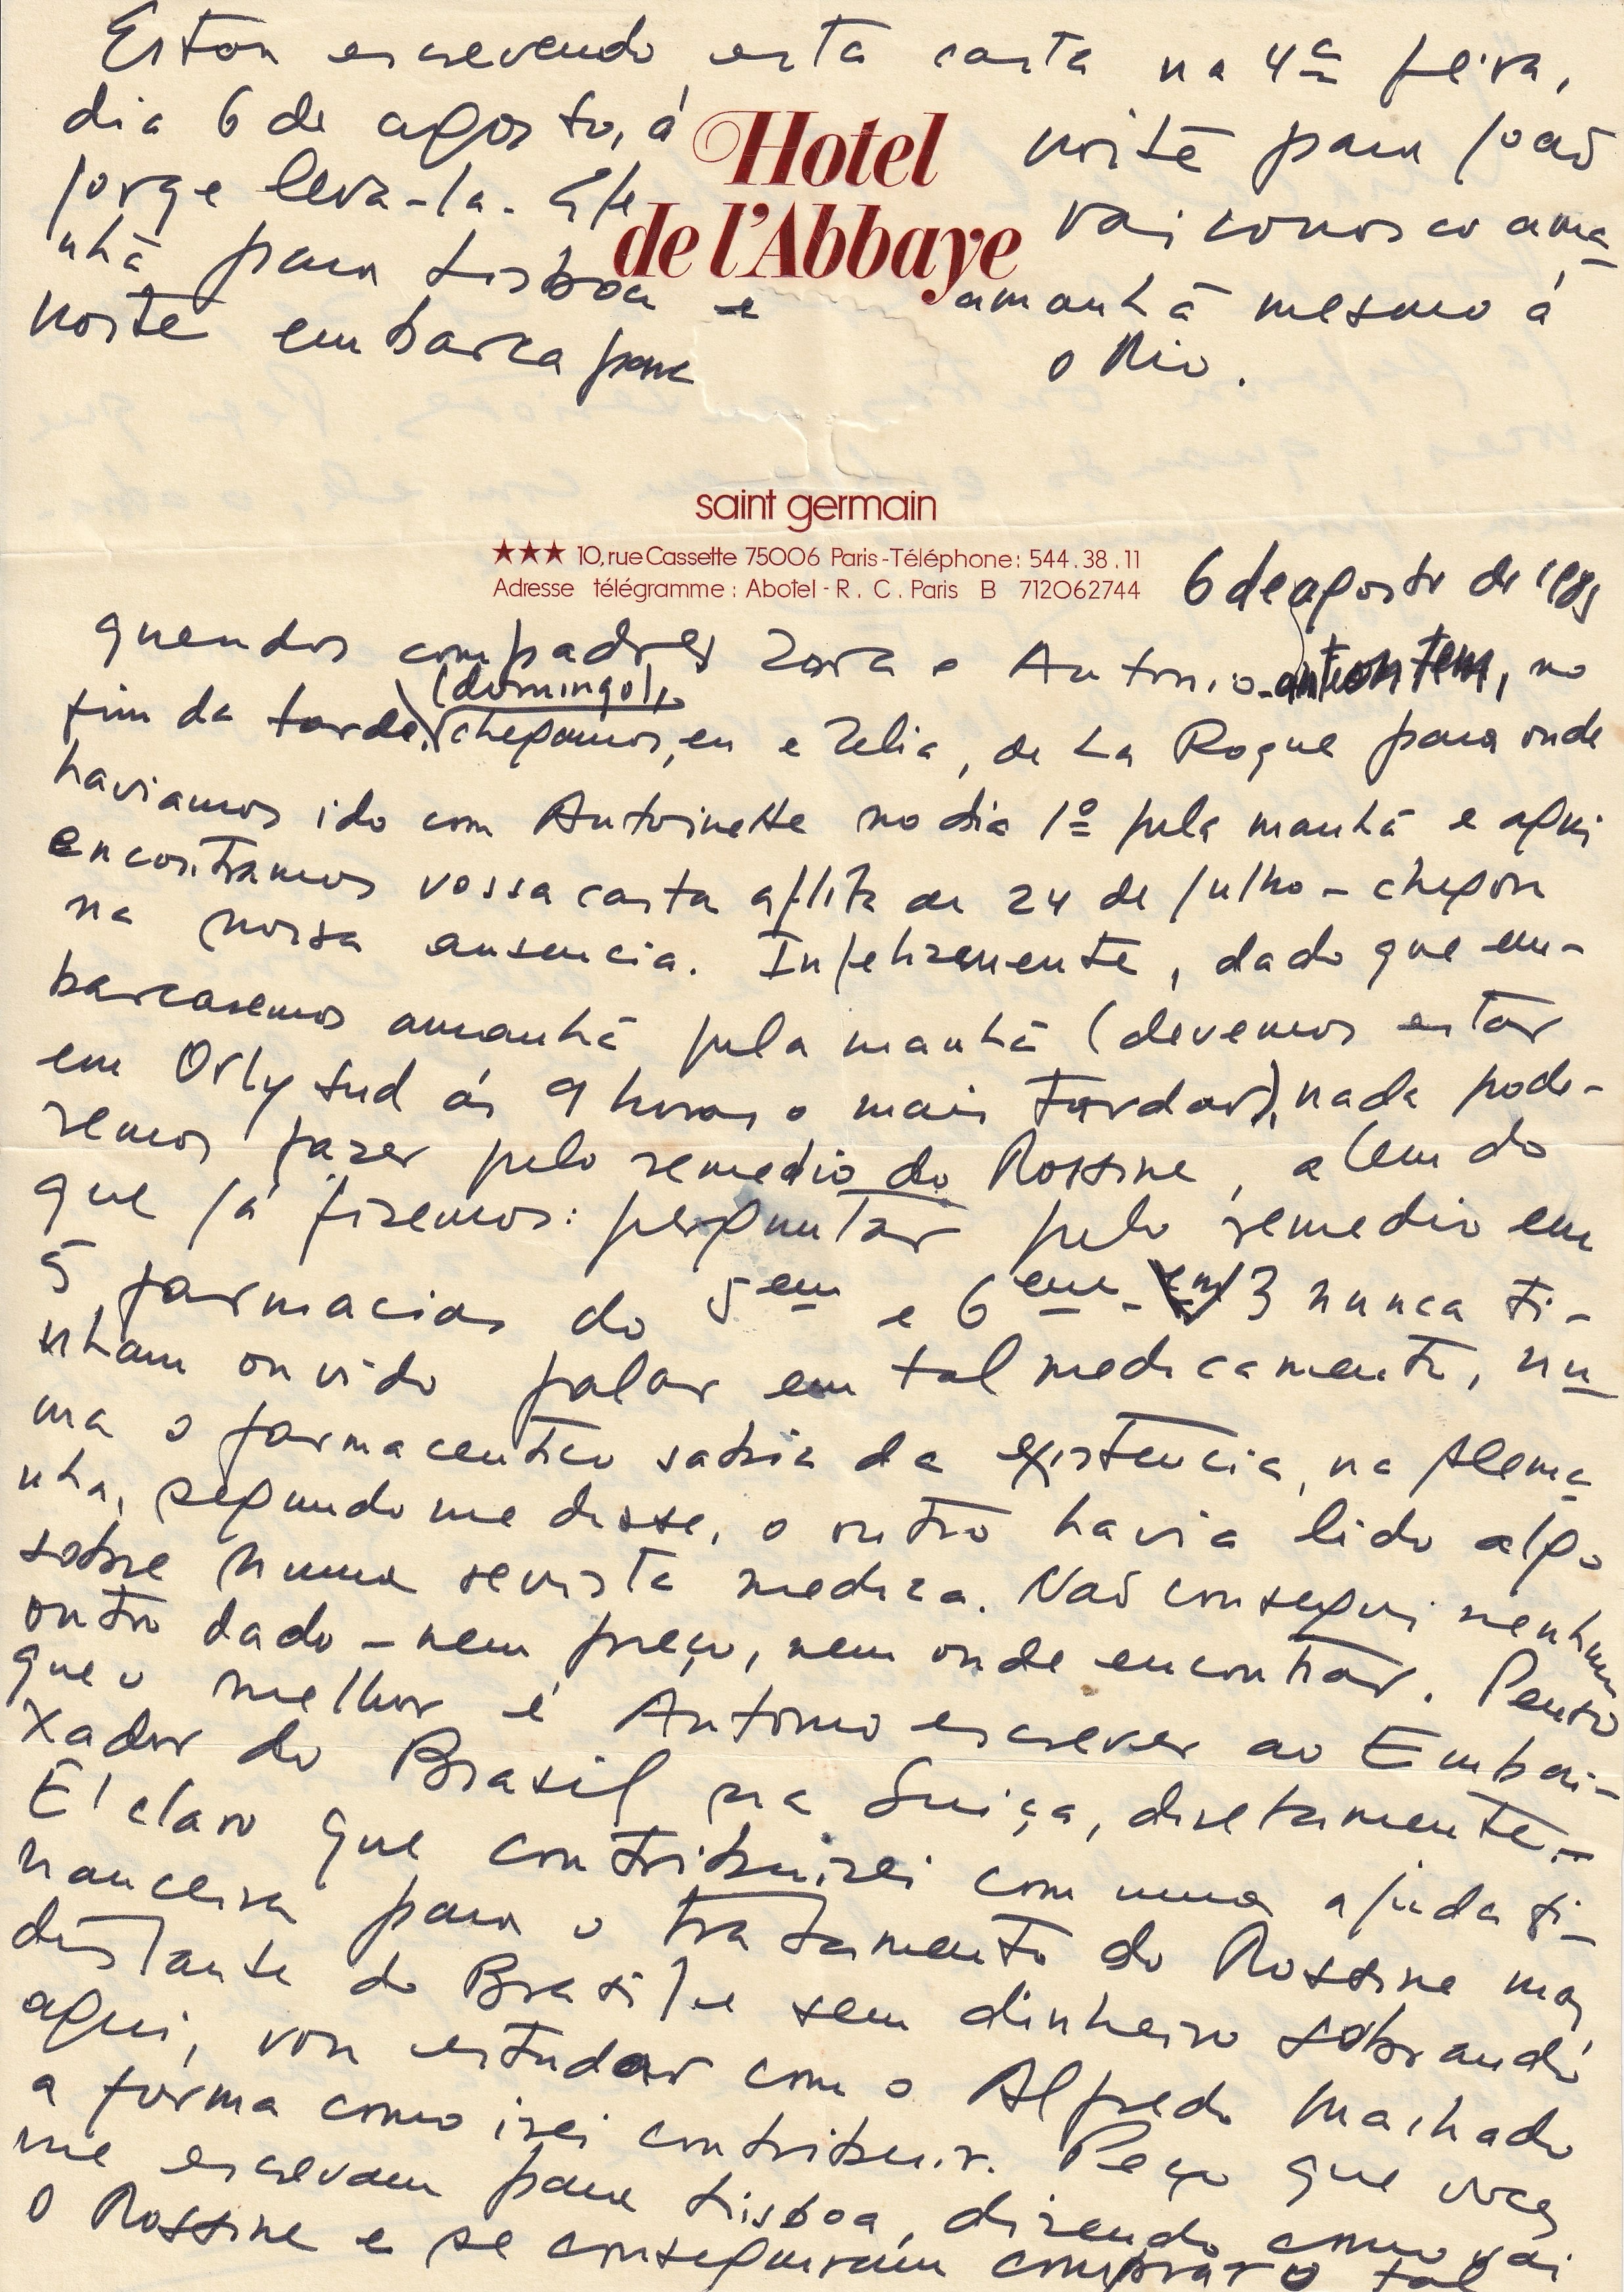 Estou escrevendo esta carta na 4ª feira,
dia 6 de agosto, á noite para João
Jorge leva-la. Ele vai conosco ama
nhã para Lisboa e amanhã mesmo á
noite embarca para o Rio.
Hotel
de l'Abbaye
saint germain
★★★ 10, rue Cassette 75006 Paris-Téléphone: 544.38.11
Adresse télégramme: Abotel - R. C. Paris B 712062744
6 de agosto de
queridos compadres Zora e Antonio - anteontem, no
fim da tarde (domingo),
chegamos, eu e Zelia, de La Roque para onde
haviamos ido com Antoinette no dia 1º pela manhã e aqui
encontramos vossa carta aflita de 24 de julho - chegou
na nossa ausencia. Infelizmente, dado que em-
barcaremos amanhã pela manhã (devemos estar
em Orly Sud ás 9 horas o mais tardar), nada pode-
remos fazer pelo remedio do Rossine, alem do
que já fizemos: perguntar pelo remedio em
5 farmacias do 5em e 6eme - em 3 nunca ti-
nham ouvido falar em tal medicamento, nu
ma o farmaceutico sabia da existencia, na Alema
nha, segundo me disse, o outro havia lido algo
sobre numa revista medica. Naõ consegui nenhum
outro dado - nem preço, nem onde encontrar. Penso
que o melhor é Antonio escrever ao Embai-
xador do Brasil na Suiça, diretamente.
E' claro que contribuirei com uma ajuda fi-
nanceira para o tratamento do Rossine mas
distante do Brasil e sem dinheiro sobrando
aqui, vou estudar com o Alfredo Machado
a forma como irei contribuir. Peço que voces
me escrevam para Lisboa, dizendo como vai
o Rossine e se conseguiram comprar o tal